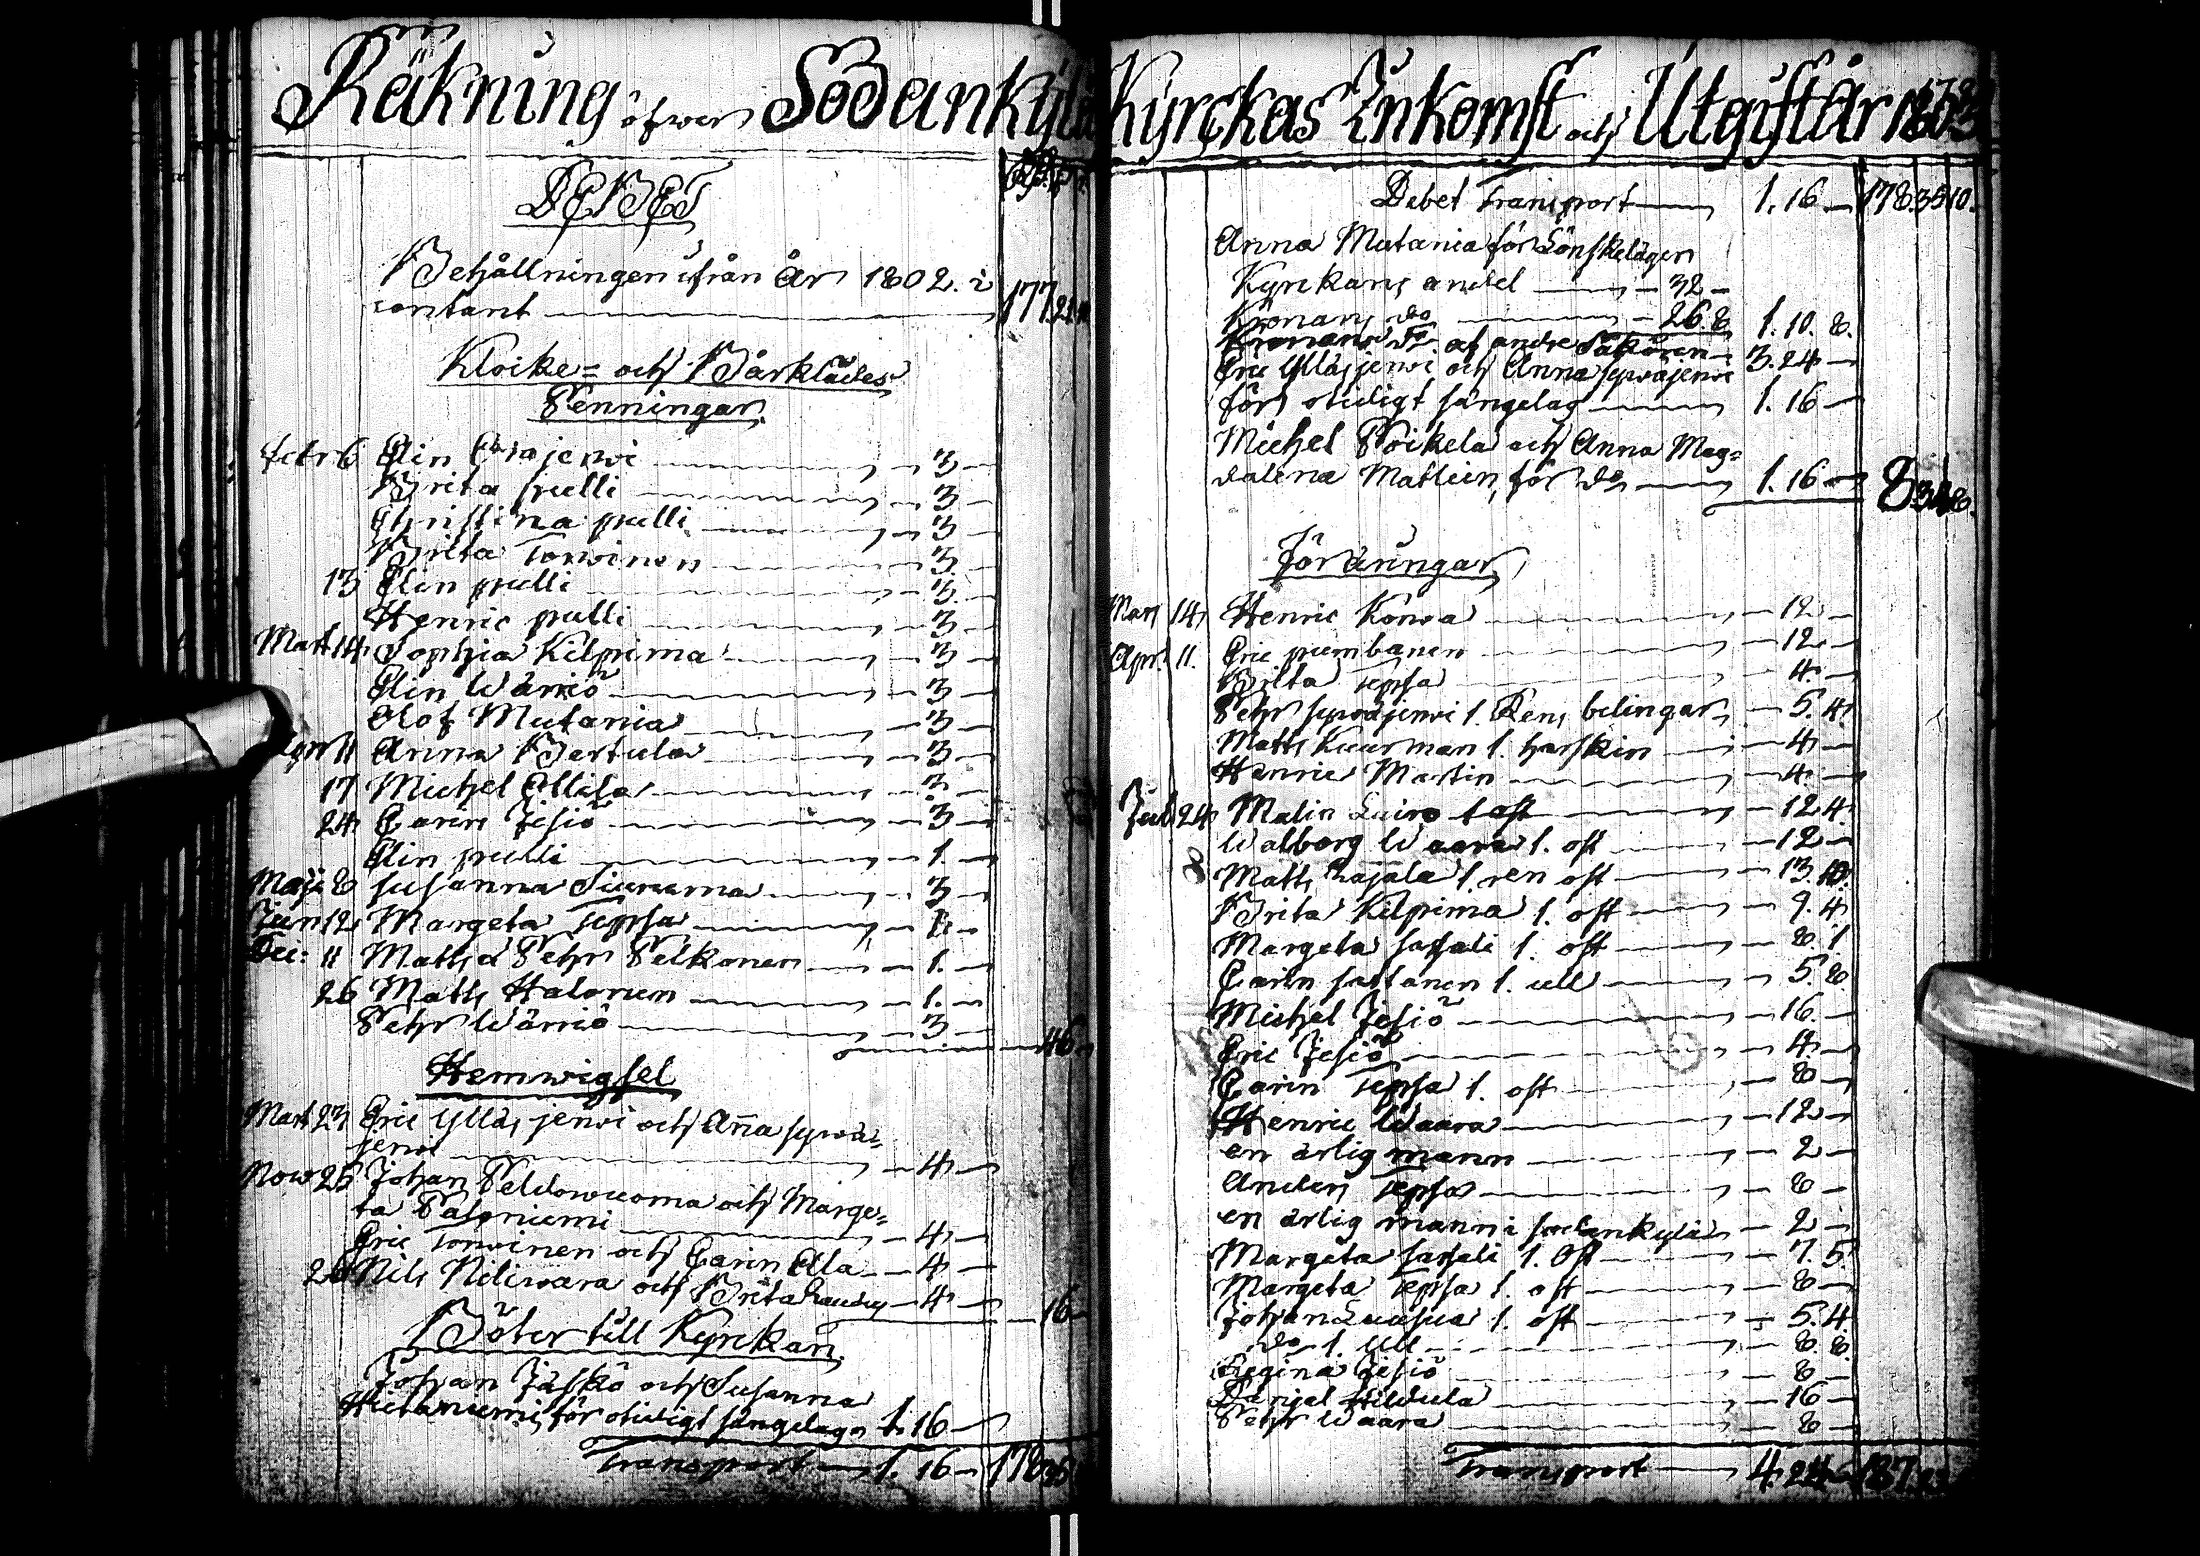 Räkning öfwer Sodankylä
DEBET
Behållningen ifrån År 1802. i
contant 177.
Klocke= och Bårklädes
Penningar.
febr 6 Elin jerwi — 3 —
Brita pulli — 3 —
Christina pulli — 3 —
Brita Torwinen — 3 —
13 Elin pulli — 3 —
Henric pulli — 3 —
Mart 14 Sophia Kilpima — 3 —
Elin Wärriö — 3 —
Olof Mutania — 3 —
Apr 11 Anna Bertula — 3 —
17 Michel Allila — 3 —
24 Carin Jesiö — 3 —
Elin pulli — 1. —
Maji 8 Susanna Siuruma — 3 —
Jun 12 Margeta Tepsa —
Dec: 11 Matts a Pehr Pelkonen — 1. —
26 Matts Halonen — 1. —
Pehr Wärriö — 3 —
46
Hemwigsel
Mart 23 Eric Ylläsjerwi och Aña sywä=
jerwi — 4 —
Now 25 Johan Peldowuoma och Marge=
ta Paloniemi — 4 —
Eric Torwinen och Carin Alla — 4 —
26 Nils Niliwara och Brita — 4 —
16
Böter till Kyrckan
Johan Jäskö och Susanna
Hietaniemi, för otidigt sängelag 1. 16 —
Transport — 1. 16 — 178
Kyrckas Inkomst och Utgift År 1803
Debet Transport — 1. 16 — 178.35.10.
Anna Mutania för Lönskeläger
Kyrckans andel — 32 —
Kronans do — 26.8 1. 10. 8.
Kronans do af andre Saköron 3. 24 —
Eric Ylläsjerwi och Anna sywäjerwi
för otidigt sängelag — 1. 16 —
Michel Poikela och Anna Mag=
dalena Mattein, för do — 1. 16 —
Föräringar
Mart 14 Henric Korwa — 12 —
Apr. 11. Eric pumbanen — 12 —
Brita Tepsa — 4 —
Pehr sywäjerwi 1. Rens belingar — 5. 4
Matts Kuurman 1. harskin — 4 —
Henric Martin — 4 —
Jul 24 Malin Luiro 1 ost — 12 4
Walborg Waara 1. ost — 12 —
Matts Rajala 1. ren ost — 13. 10.
Brita Kilpima 1. ost — 9. 4
Margeta sassali 1. ost — 8. 1
Carin sattanen 1. ull — 5. 8
Michel Jesiö — 16. —
Eric Jesiö — 4. —
Carin Tepsa 1. ost — 8 —
Henric Waara — 12 —
en ärlig mann — 2 —
Anders Tepsa — 8 —
en ärlig mann i sodankylä — 2 —
Margeta sassali 1. ost — 7. 5.
Margeta Tepsa 1. ost — 8 —
Johan Luusua 1. ost — 5. 4.
do 1. ull — 8. 8.
Regina Jesiö — 8 —
Danjel Hildula — 16 —
Pehr Waara — 8 —
Transport — 4. 24